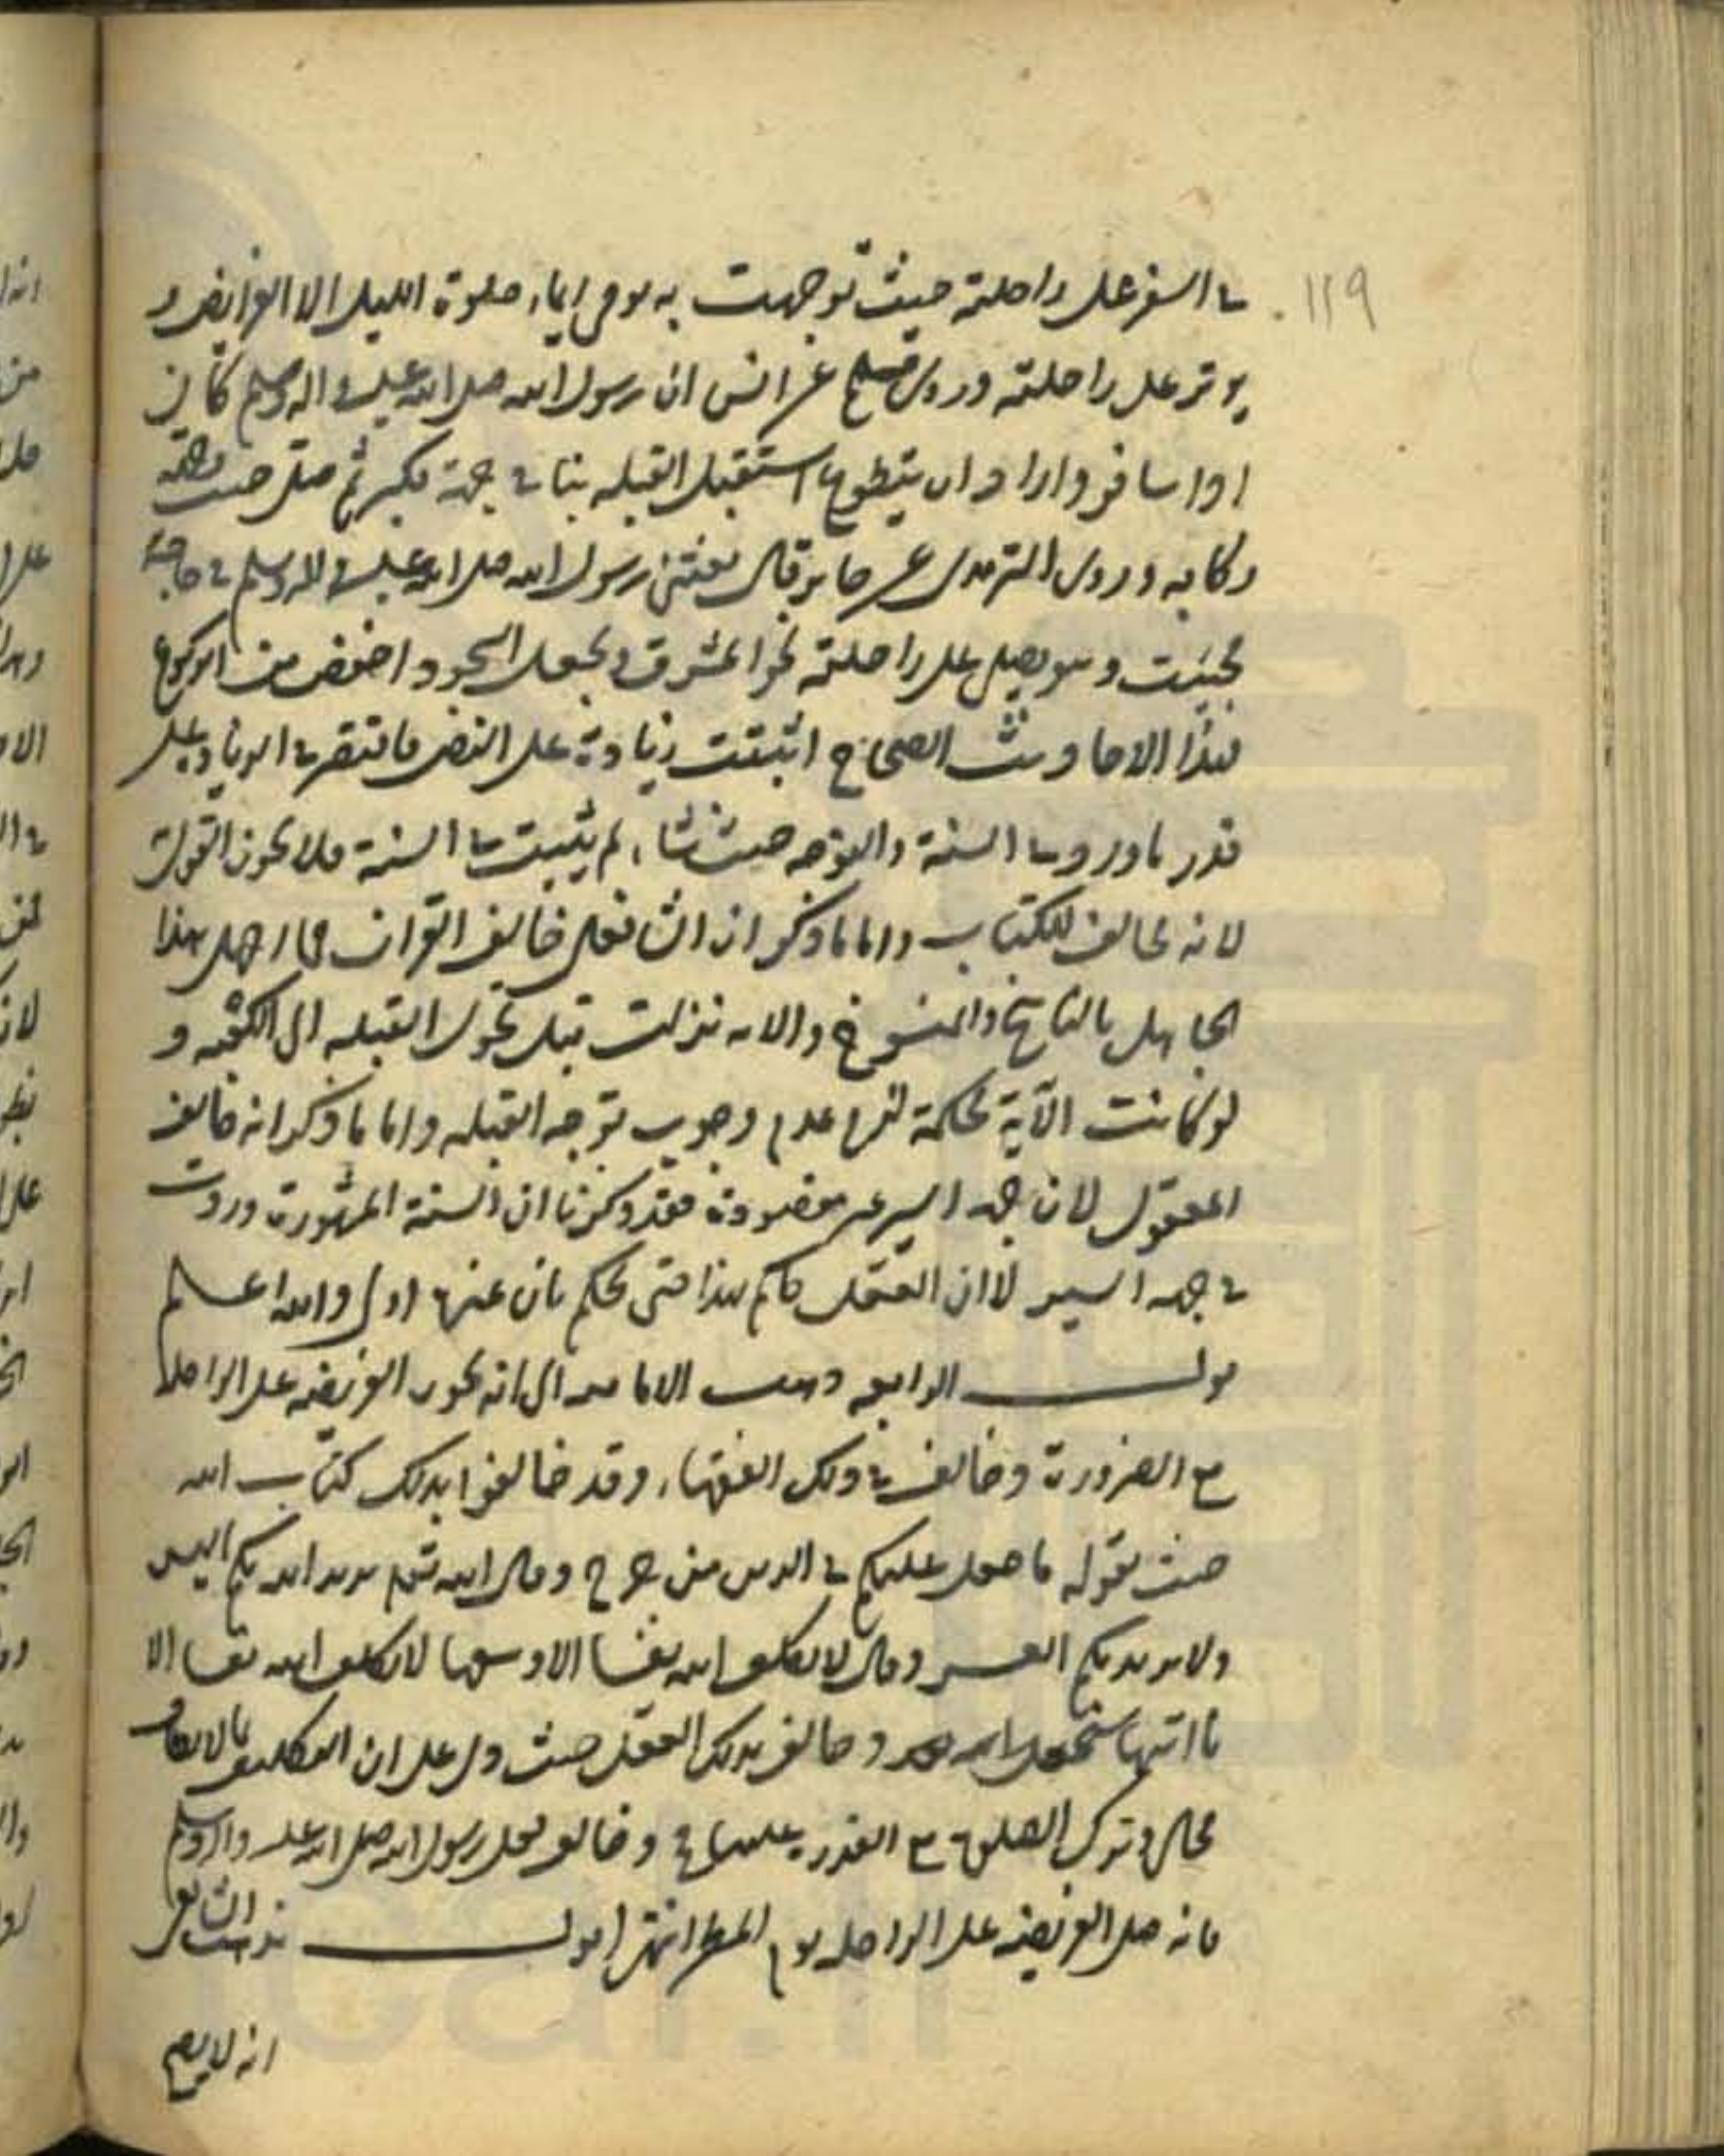 119
في السفر على راحلته حيث توجهت به يومي ايماء صلوة الليل الا الفرايض و
يوتر على راحلته وروى مسلم عن انس ان رسول الله صلى الله عليه واله وسلم كان
اذا سافر واراد ان يتطوع استقبل القبله بناقته فكبر ثم صلى حيث وجهه
ركابه وروى الترمدى عن جابر قال بعثنى رسول الله صلى الله عليه واله وسلم في حاجة
فجئت وهو يصلى على راحلته نحو المشرق ويجعل السجود اخفض من الركوع
فهذا الاحاديث الصحاح اثبتت زيادة على النص فاقتصر في الزيادة على
قدر ما ورد في السنة والتوجه حيث شاء لم يثبت في السنة فلا يجوز القول
لانه يخالف للكتاب واما ما ذكر ان الشافعى خالف القران فما اجهل هذا
الجاهل بالناسخ والمنسوخ والايه نزلت قبل تحول القبله الى الكعبه و
لو كانت الآية محكمة لزم عدم وجوب توجه القبله واما ما ذكر انه خالف
المعقول لان جهة السير غير مقصودة فقد ذكرنا ان السنة المشهورة وردت
في جهه السير لا ان العقل حاكم بهذا حتى يحكم بان غيرها اولى والله اعلم
قولـــه الرابعه ذهبت الاماميه الى انه يجوز الفريضه على الراحله
مع الضرورة وخالف في ذلك الفقهاء وقد خالفوا بذلك كتاب الله
حيث يقوله ما جعل عليكم في الدين من حرج وقال الله تعم يريد الله بكم اليسر
ولا يريد بكم العسر وقال لا يكلف الله نفسا الا وسعها لا يكلف الله نفسا الا
ما اتيها سيجعل الله وخالف بذلك العقل حيث دل على ان التكليف بما لا يطاق
محال وترك الصلوة مع القدرة عليها وخالف فعل رسول الله صلى الله عليه واله وسلم
فانه صلى الفريضه على الراحله يوم المطر انتهى اقولـــ مذهب الشافعى
انه لا يصح